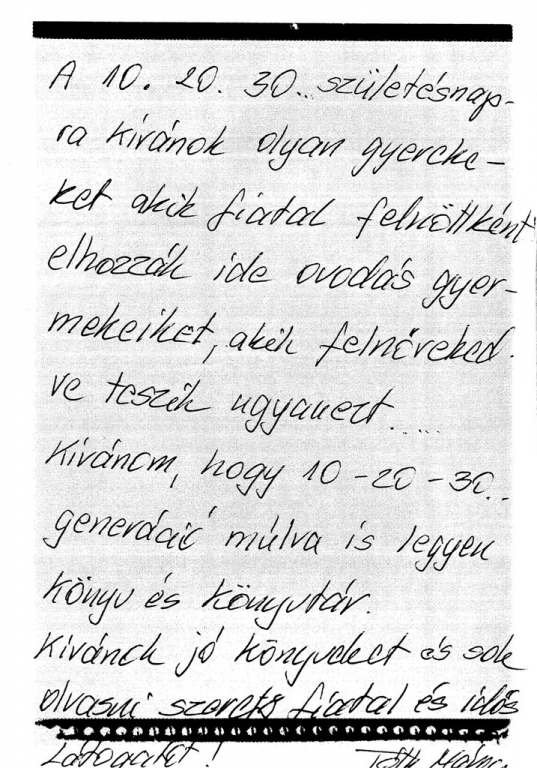 A 10. 20. 30... születésnap-
ra kívánok olyan gyereke-
ket akik fiatal felnőttként
elhozzák ide ovodás gyer-
mekeiket, akik felnöveked-
ve teszik ugyanezt.....
Kívánom, hogy 10-20-30...
generáció múlva is legyen
könyv és könyvtár.
Kívánok jó könyveket és sok
olvasni szerető fiatal és idős
Látogatót!
Tóth